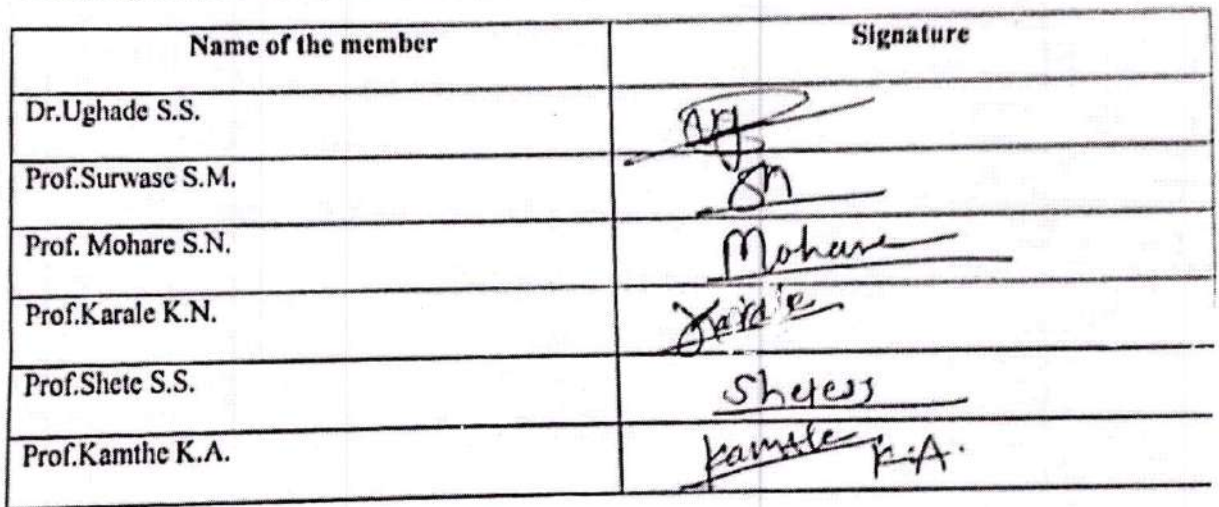 Name of the member Signature
Dr.Ughade S.S.
Prof.Surwase S.M. SM
Prof. Mohare S.N. Mohare
Prof.Karale K.N.
Prof.Shete S.S. Shetess
Prof.Kamthe K.A. Kamthe K.A.